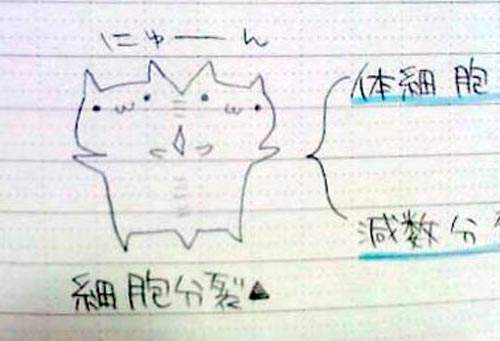 にゅーん
体細胞
減数分
細胞分裂▲